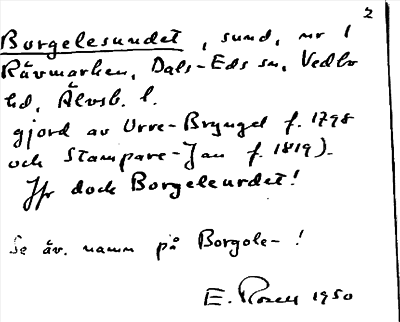 2
Borgelesundet, sund, nr 1
Rävmarken, Dals-Eds sn, Vedbo
hd, Älvsb. l.
gjord av Urre-Bryngel f. 1798
och Stampare-Jan f. 1819).
Jfr dock Borgeleurdet!
Se äv. namn på Borgole- !
E. Rosell 1950